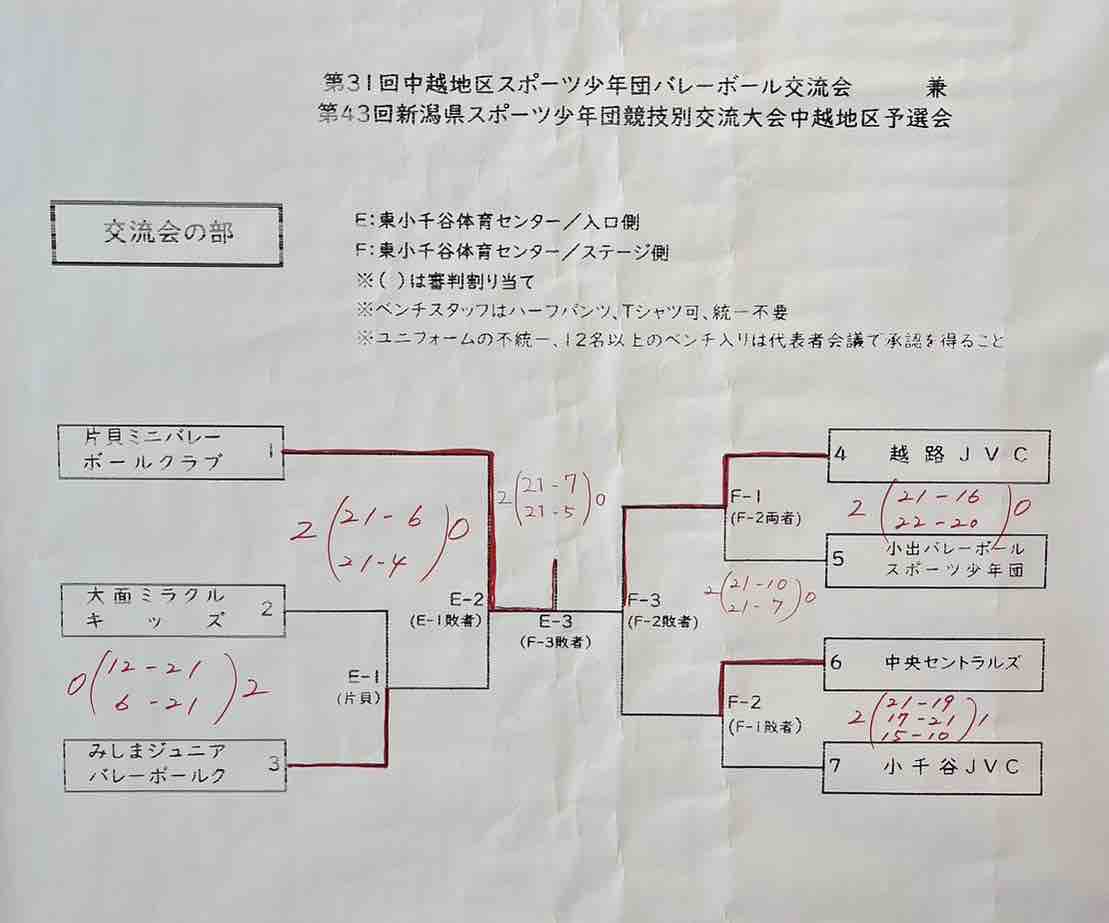 第31回中越地区スポーツ少年団バレーボール交流会 兼
第43回新潟県スポーツ少年団競技別交流大会中越地区予選会
交流会の部
E:東小千谷体育センター/入口側
F:東小千谷体育センター/ステージ側
※( )は審判割り当て
※ベンチスタッフはハーフパンツ、Tシャツ可、統一不要
※ユニフォームの不統一、12名以上のベンチ入りは代表者会議で承認を得ること
片貝ミニバレー
ボールクラブ 1
2 (21-6
21-4) 0
大面ミラクル
キッズ 2
0 (12-21
6-21) 2
みしまジュニア
バレーボールク 3
E-1
(片貝)
E-2
(E-1敗者)
2 (21-7
21-5) 0
E-3
(F-3敗者)
F-3
(F-2敗者)
2 (21-10
21-7) 0
F-1
(F-2両者)
F-2
(F-1敗者)
4 越路JVC
2 (21-16
22-20) 0
5 小出バレーボール
スポーツ少年団
6 中央セントラルズ
2 (21-19
17-21
15-10) 1
7 小千谷JVC